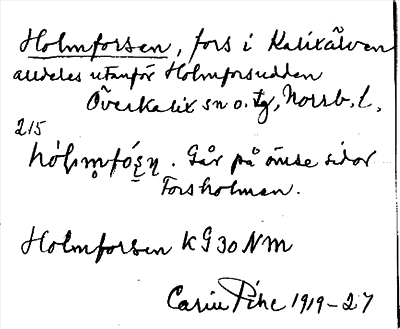 Holmforsen, fors i Kalixälven
alldeles utanför Holmforsudden
Överkalix sn o. tg, Norrb. l.,
215
Går på ömse sidor
Forsholmen.
Holmforsen KG30NM
Carin Pihl 1919-27